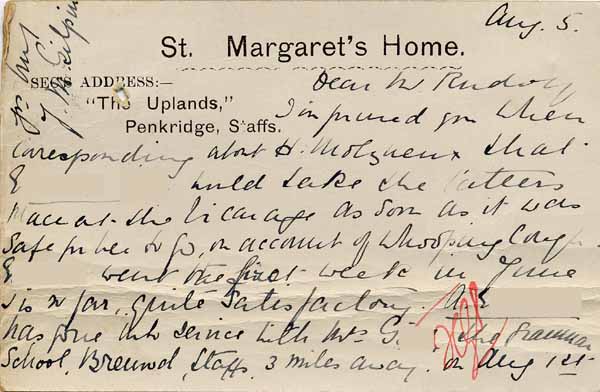 Aug. 5.
St. Margaret's Home.
SEC'S ADDRESS:—
"The Uplands,"
Penkridge, Staffs.
Dear Mr Rudolf
I informed you when
corresponding about H. Molyneux that
E would take the latters
place at the Vicarage as soon as it was
safe for her to go, on account of Whooping Cough.
E went the first week in June
& is so far, quite satisfactory. A. E
has gone into service with Mrs G. Grammar
School, Brewood, Staffs, 3 miles away. on Aug 1st
yrs truly
J. Gilpin